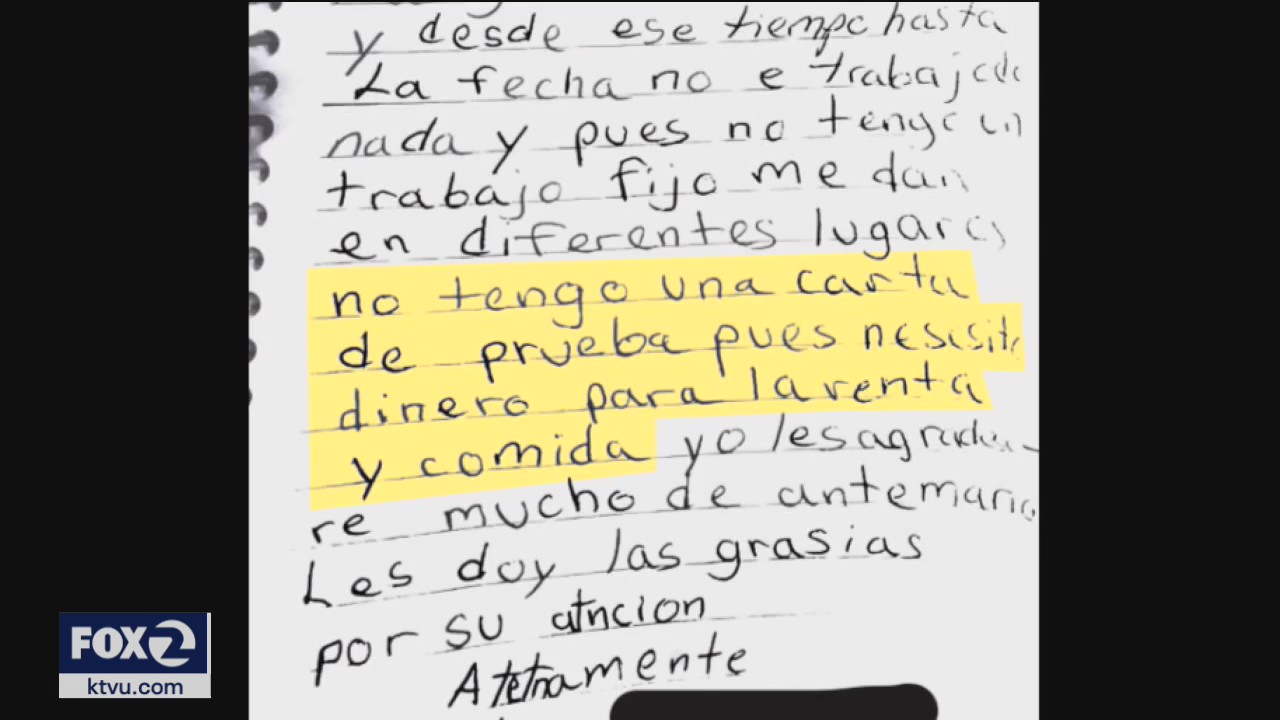 y desde ese tiempo hasta
La fecha no e trabajado
nada y pues no tengo un
trabajo fijo me dan
en diferentes lugares
no tengo una carta
de prueba pues nesesito
dinero para la renta
y comida yo les agradese
re mucho de antemano
Les doy las grasias
por su atncion
Atetnamente
FOX 2
ktvu.com